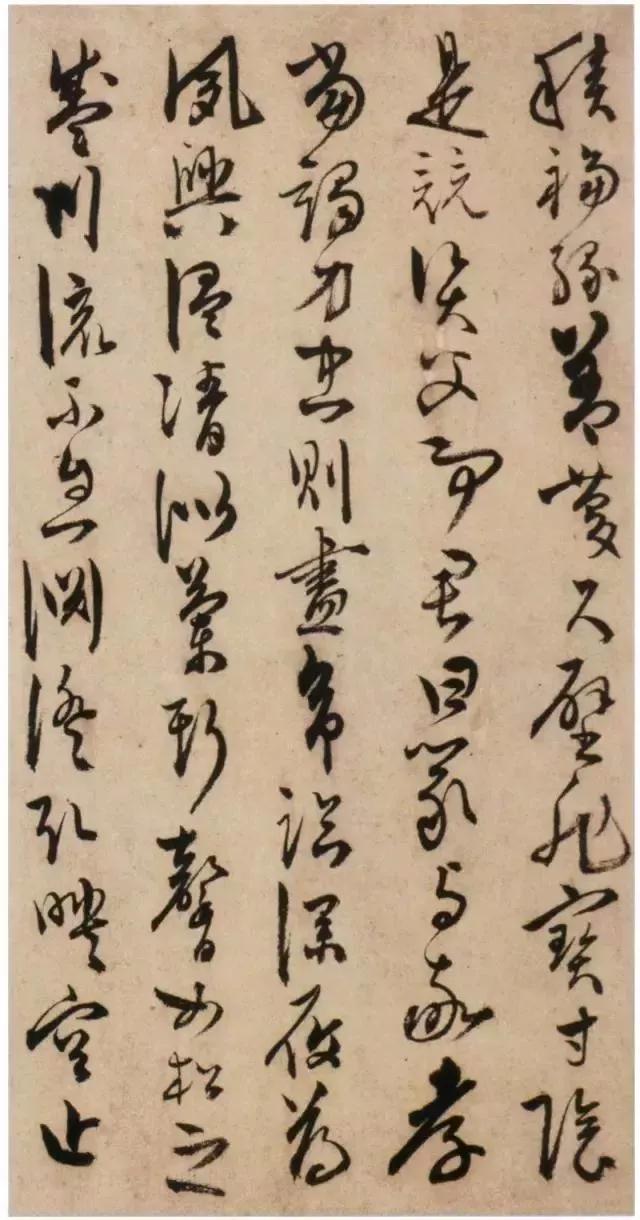 積福緣善慶尺璧非寶寸陰
是競資父事君曰嚴與敬孝
當竭力忠則盡命臨深履薄
夙興溫清似蘭斯馨如松之
盛川流不息淵澄取映容止